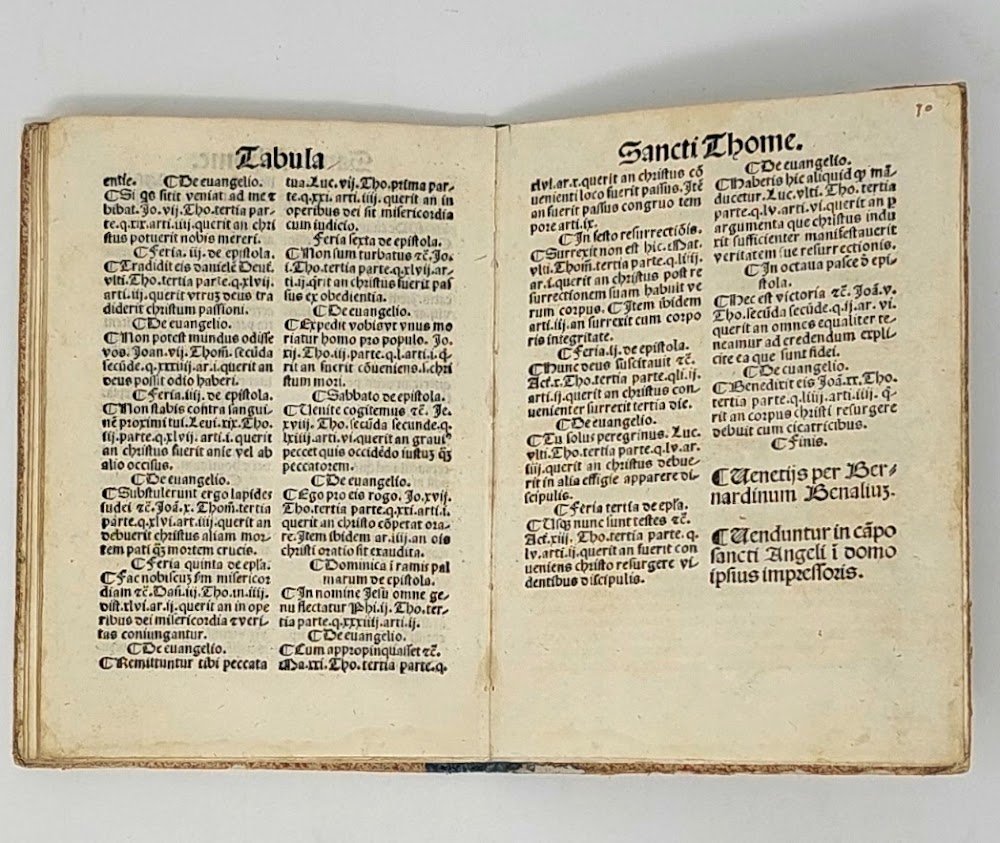 Tabula
entie. ¶De euangelio.
¶Si q̄s sitit veniat ad me ⁊
bibat. Jo. vij. Tho. tertia par-
te.q.xix.arti.iiij.querit an chri
stus potuerit nobis mereri.
¶Feria. iij. de epistola.
¶Tradidit eis danielē Deut.
vlti. Tho.tertia parte.q.xlvij.
arti.iij.querit vtruꝫ deus tra
diderit christum passioni.
¶De euangelio.
¶Non potest mundus odisse
vos. Joan. vij. Thom̄. secūda
secūde.q.xxxiiij.ar.i.querit an
deus possit odio haberi.
¶Feria.iiij. de epistola.
¶Non stabis contra sangui
nē proximi tui. Leui. xix. Tho.
iij.parte.q.xlvij. arti.i. querit
an christus fuerit a nie vel ab
alio occisus.
¶De euangelio.
¶Substulerunt ergo lapides
iudei ⁊c̄. Joā.x. Thom̄.tertia
parte.q.xlvi.art.iiij.querit an
debuerit christus aliam mor-
tem pati q̄ꝫ mortem crucis.
¶Feria quinta de ep̄la.
¶Fac nobiscuꝫ ẜm misericor
diam ⁊c̄. Dañ.iij. Tho.in.iiij.
dist.xlvi.ar.ij.querit an in ope
ribus dei misericordia ⁊ veri-
tas coniungantur.
¶De euangelio.
¶Remittuntur tibi peccata
tua. Luc. vij. Tho. prima par-
te.q.xxi.arti.iiij.querit an in
operibus dei sit misericordia
cum iudicio.
Feria sexta de epistola.
¶Non sum turbatus ⁊c̄. Jo.
i.Tho.tertia parte.q.xlvij.ar-
ti.ij.q̄rit an christus fuerit pas
sus ex obedientia.
¶De euangelio.
¶Expedit vobis vt vnus mo
riatur homo pro populo. Jo.
xj. Tho.iij.parte.q.l.arti.i.q̄-
rit an fuerit cōueniens.i.chri
stum mori.
¶Sabbato de epistola.
¶Uenite cogitemus ⁊c̄. Je.
xviij. Tho. secūda secunde.q.
lxiiij.arti.vi.querit an graui⁹
peccet quis occidēdo iustuꝫ q̄ꝫ
peccatorem.
¶De euangelio.
¶Ego pro eis rogo. Jo.xvij.
Tho.tertia parte.q.xxi.arti.i.
querit an christo cōpetat ora-
re. Item ibidem ar.iiij.an ois
christi oratio sit exaudita.
¶Dominica ī ramis pal
marum de epistola.
¶In nomine Jesu omne ge-
nu flectatur Phi.ij. Tho.ter-
tia parte.q.xxxiiij.arti.ij.
¶De euangelio.
¶Cum appropinquasset ⁊c̄.
Ma.xxi. Tho.tertia parte.q.
Sancti Thome.
xlvi.ar.x.querit an christus cō
uenienti loco fuerit passus. Itē
an fuerit passus congruo tem
pore arti.ix.
¶In festo resurrectiōis.
¶Surrexit non est hic. Mat.
vlti. Thom̄.tertia parte.q.liiij.
ar.i.querit an christus post re
surrectionem suam habuit ve
rum corpus. ¶Item ibidem
arti.iij.an surrexit cum corpo
ris integritate.
¶Feria.ij. de epistola.
¶Hunc deus suscitauit ⁊c̄.
Act.x. Tho.tertia parte.q.liij.
arti.ij.querit an christus con-
uenienter surrexit tertia die.
¶De euangelio.
¶Tu solus peregrinus. Luc.
vlti. Tho.tertia parte.q.lv.ar.
iiij.querit an christus debue-
rit in alia effigie apparere di-
scipulis.
¶Feria tertia de ep̄la.
¶Usq̄ꝫ nunc sunt testes ⁊c̄.
Act.xiij. Tho.tertia parte. q.
lv.arti.ij.querit an fuerit con
ueniens christo resurgere vi-
dentibus discipulis.
10
¶De euangelio.
¶Habetis hic aliquid qđ mā
ducetur. Luc. vlti. Tho. tertia
parte.q.lv.arti.vi.querit an ꝑ
argumenta que christus indu
xit sufficienter manifestauerit
veritatem sue resurrectionis.
¶In octaua pasce đ epi-
stola.
¶Hec est victoria ⁊c̄. Joā.v.
Tho.secūda secūde.q.ij.ar.vi.
querit an omnes equaliter te-
neamur ad credendum expli-
cite ea que sunt fidei.
¶De euangelio.
¶Benedixit eis Joā.xx. Tho.
tertia parte.q.liiij.arti.iiij.q̄-
rit an corpus christi resurgere
debuit cum cicatricibus.
¶Finis.
¶Uenetijs per Ber-
nardinum Benaliuꝫ.
¶Uenduntur in cāpo
sancti Angeli ī domo
ipsius impressoris.